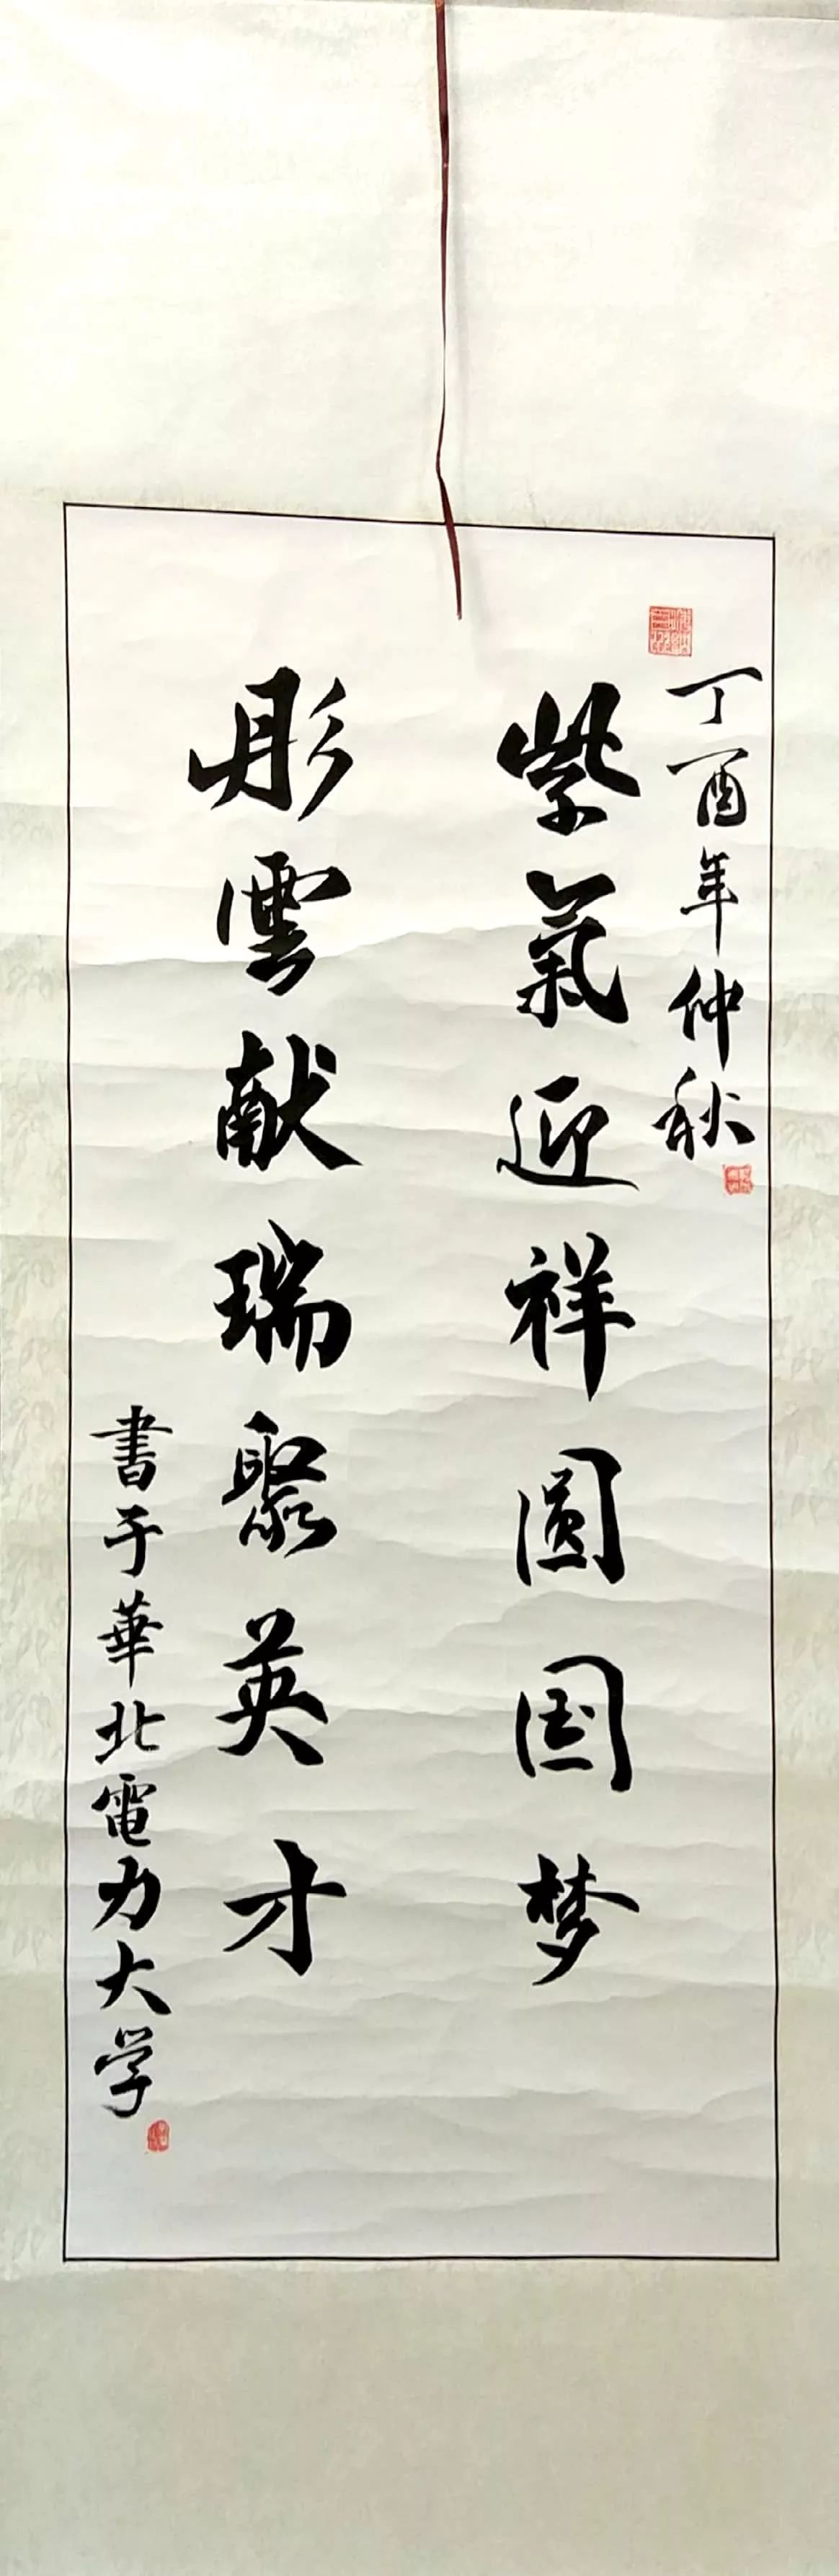 丁酉年仲秋
紫氣迎祥圓国梦
彤雲献瑞聚英才
書于華北電力大学